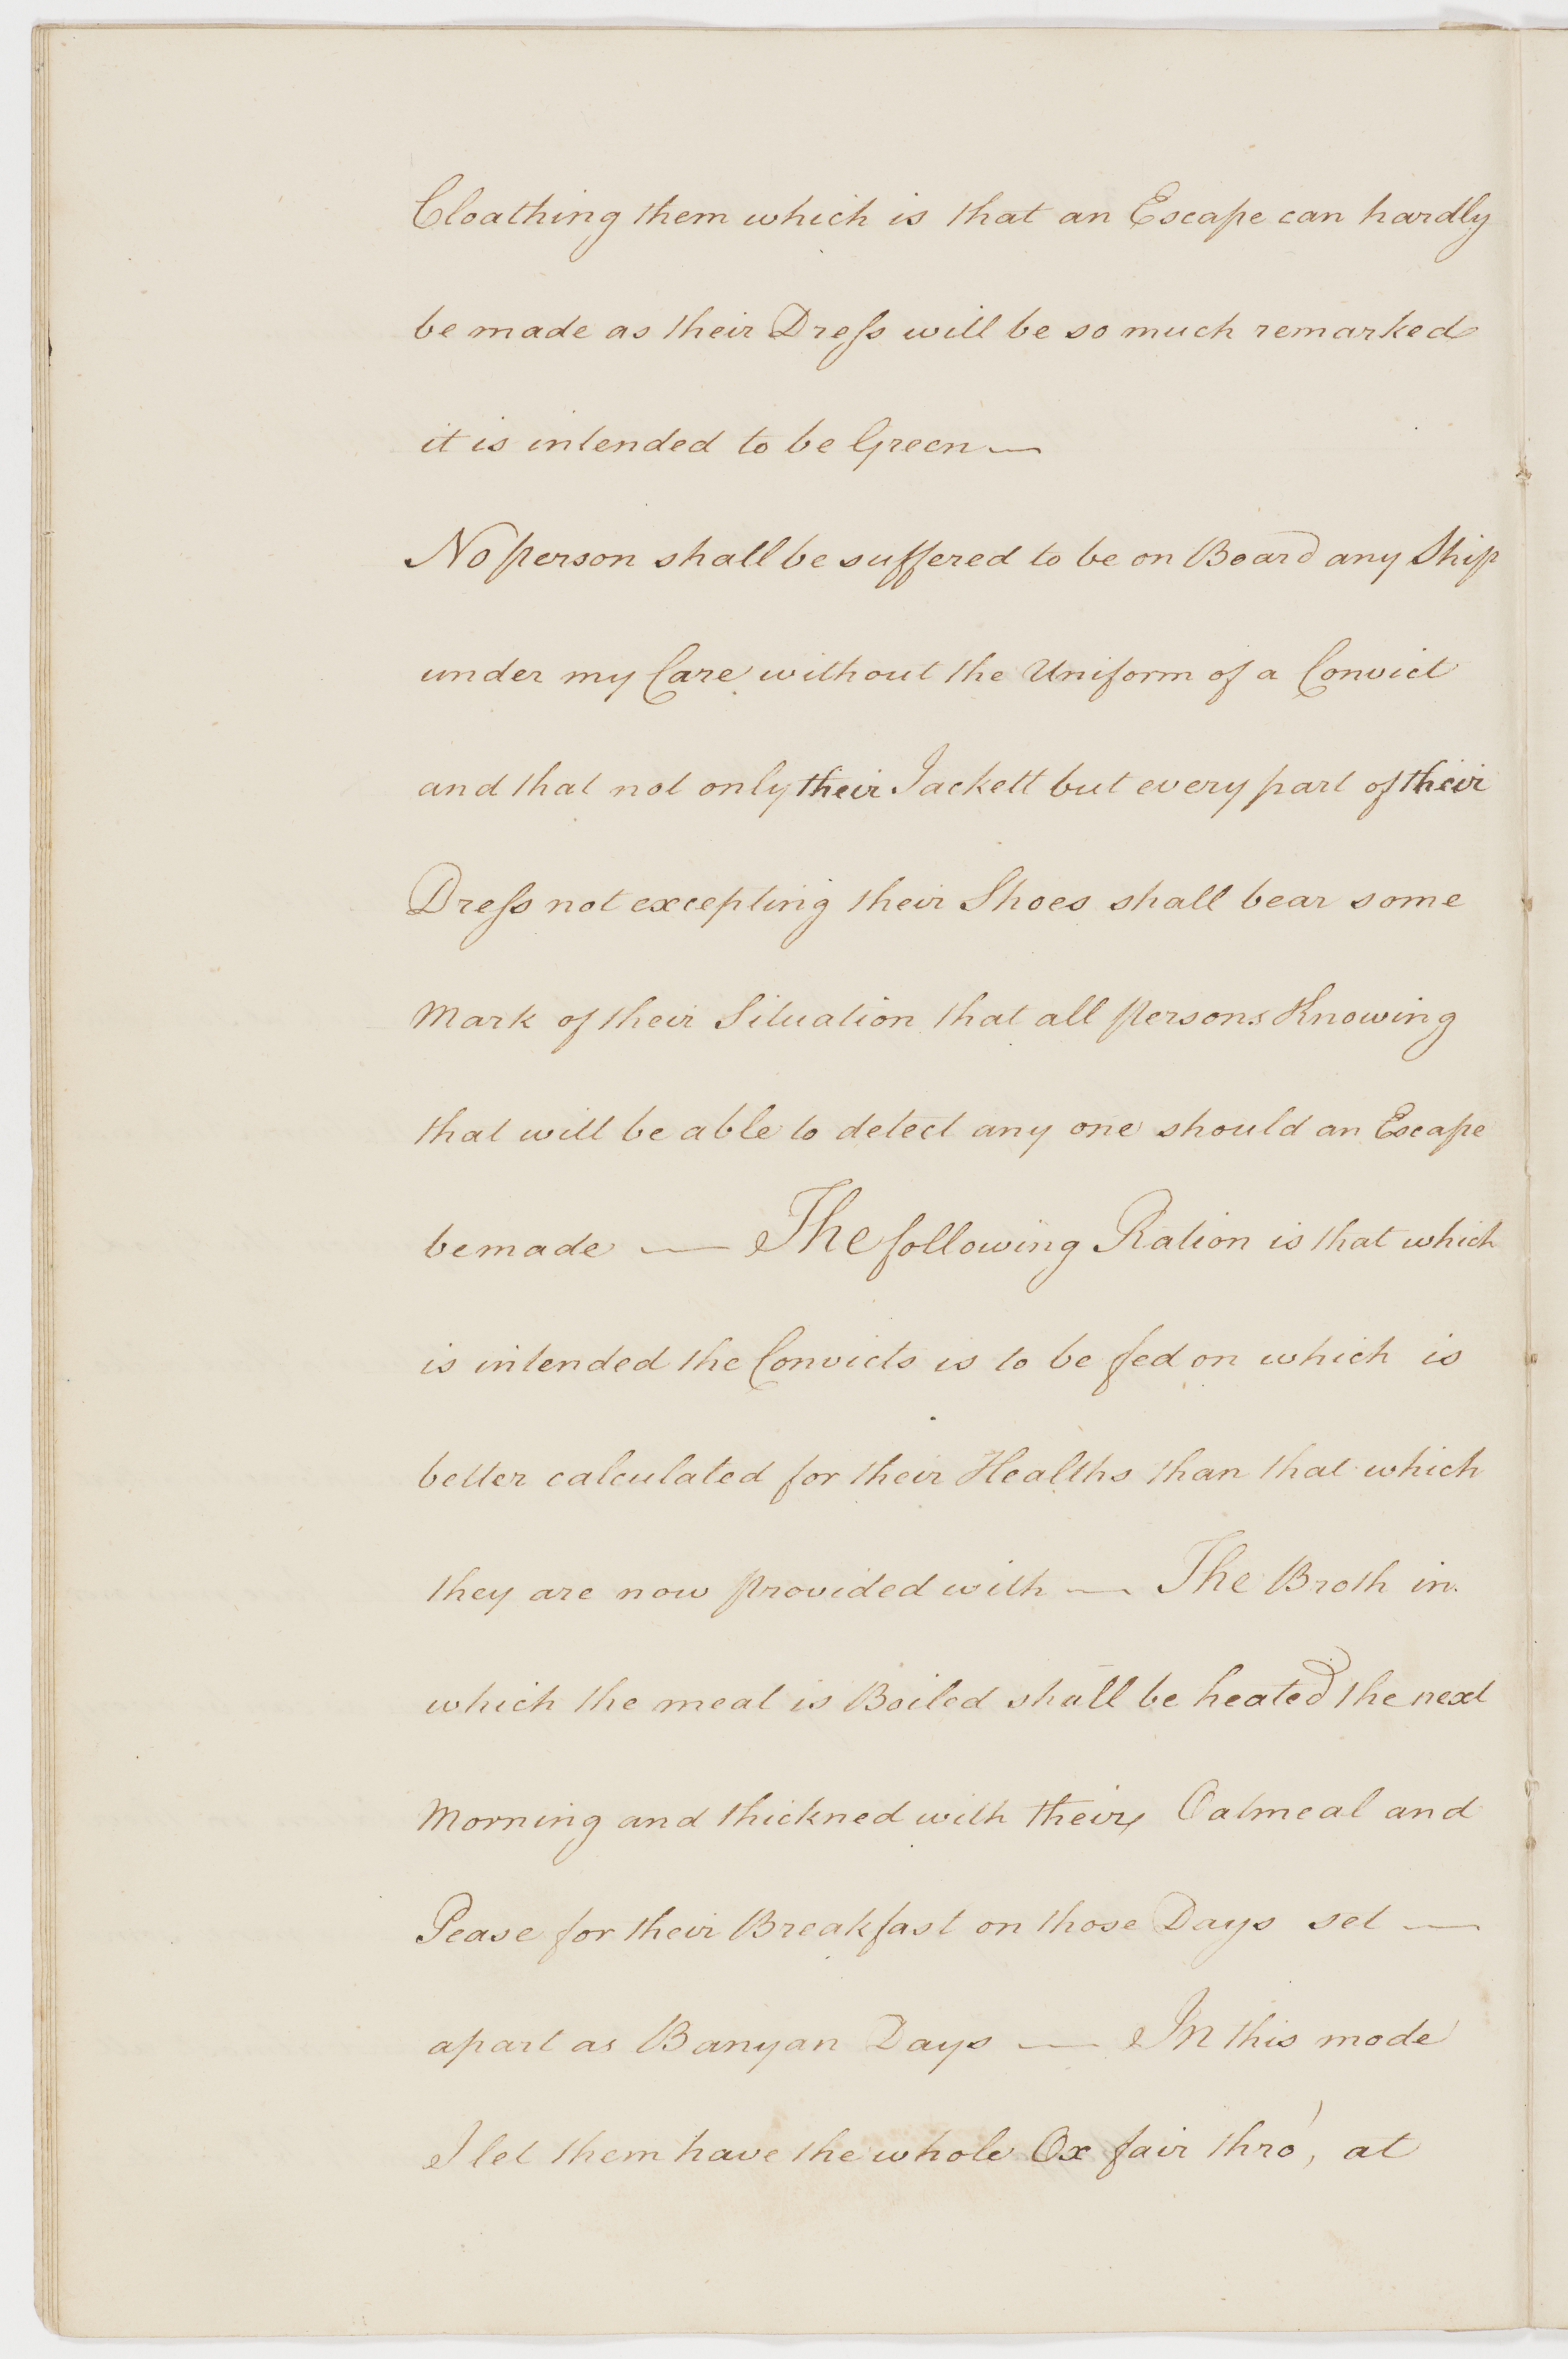 Cloathing them which is that an Escape can hardly
be made as their Dreſs will be so much remarked
it is intended to be Green —
No person shall be suffered to be on Board any Ship
under my Care without the Uniform of a Convict
and that not only their Jackett but every part of their
Dreſs not excepting their Shoes shall bear some
Mark of their Situation that all persons Knowing
that will be able to detect any one should an Escape
be made — The following Ration is that which
is intended the Convicts is to be fed on which is
better calculated for their Healths than that which
they are now provided with — The Broth in
which the meat is Boiled shall be heated the next
Morning and thickned with their Oatmeal and
Pease for their Breakfast on those Days set —
apart as Banyan Days — In this mode
I let them have the whole Ox fair thro', at